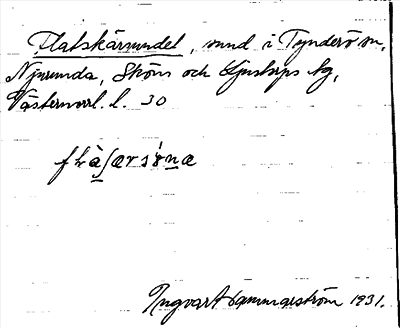 Flatskärsundet, sund i Tynderö sn,
Njurunda, Sköns och Ljustorps tg,
Västernorrl. l. 30
Ingvar Hammarström 1931.